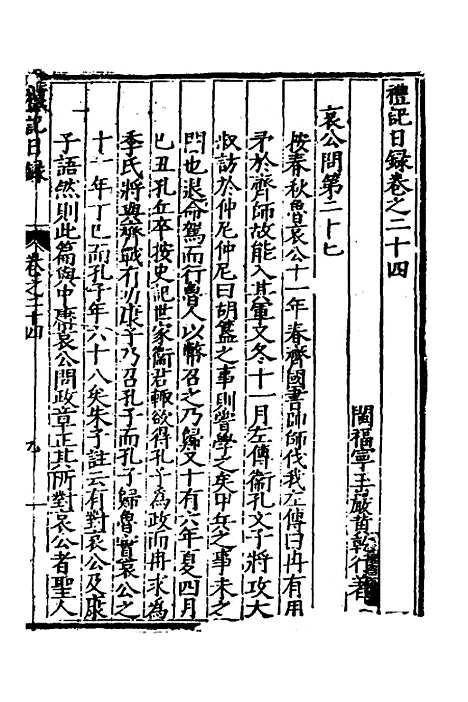 禮記日録卷之二十四
閩福寧玉巖黄乾行著
哀公問第二十七
按春秋魯哀公十一年春齊國書帥師伐我左傳曰冉有用
矛於齊師故能入其軍又冬十一月左傳衞孔文子將攻大
叔訪於仲尼仲尼曰胡簋之事則嘗學之矣甲兵之事未之
聞也退命駕而行魯人以幣召之乃歸又十有六年夏四月
已丑孔丘卒按史記世家衞君輒欲得孔子為政而冉求為
季氏將與齊戰有功康子乃召孔子而孔子歸魯實哀公之
十一年丁巳而孔子年六十八矣朱子註云有對哀公及康
子語然則此篇與中庸哀公問政章正其所對哀公者聖人
禮記日録
卷之二十四
九